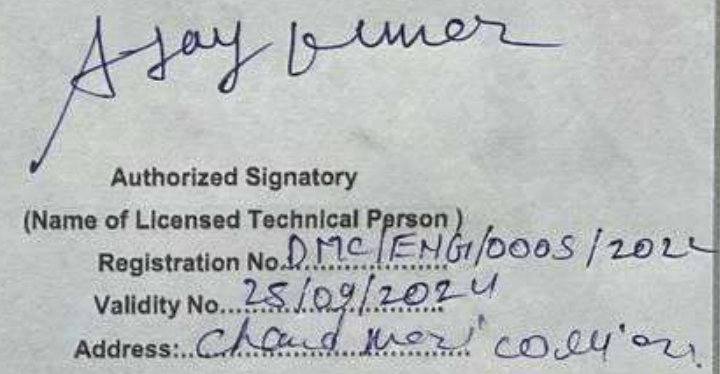 Ajay Kumar
Authorized Signatory
(Name of Licensed Technical Person )
Registration No. DMC/ENG/0005/2022
Validity No.... 25/09/2024
Address:.. Chand